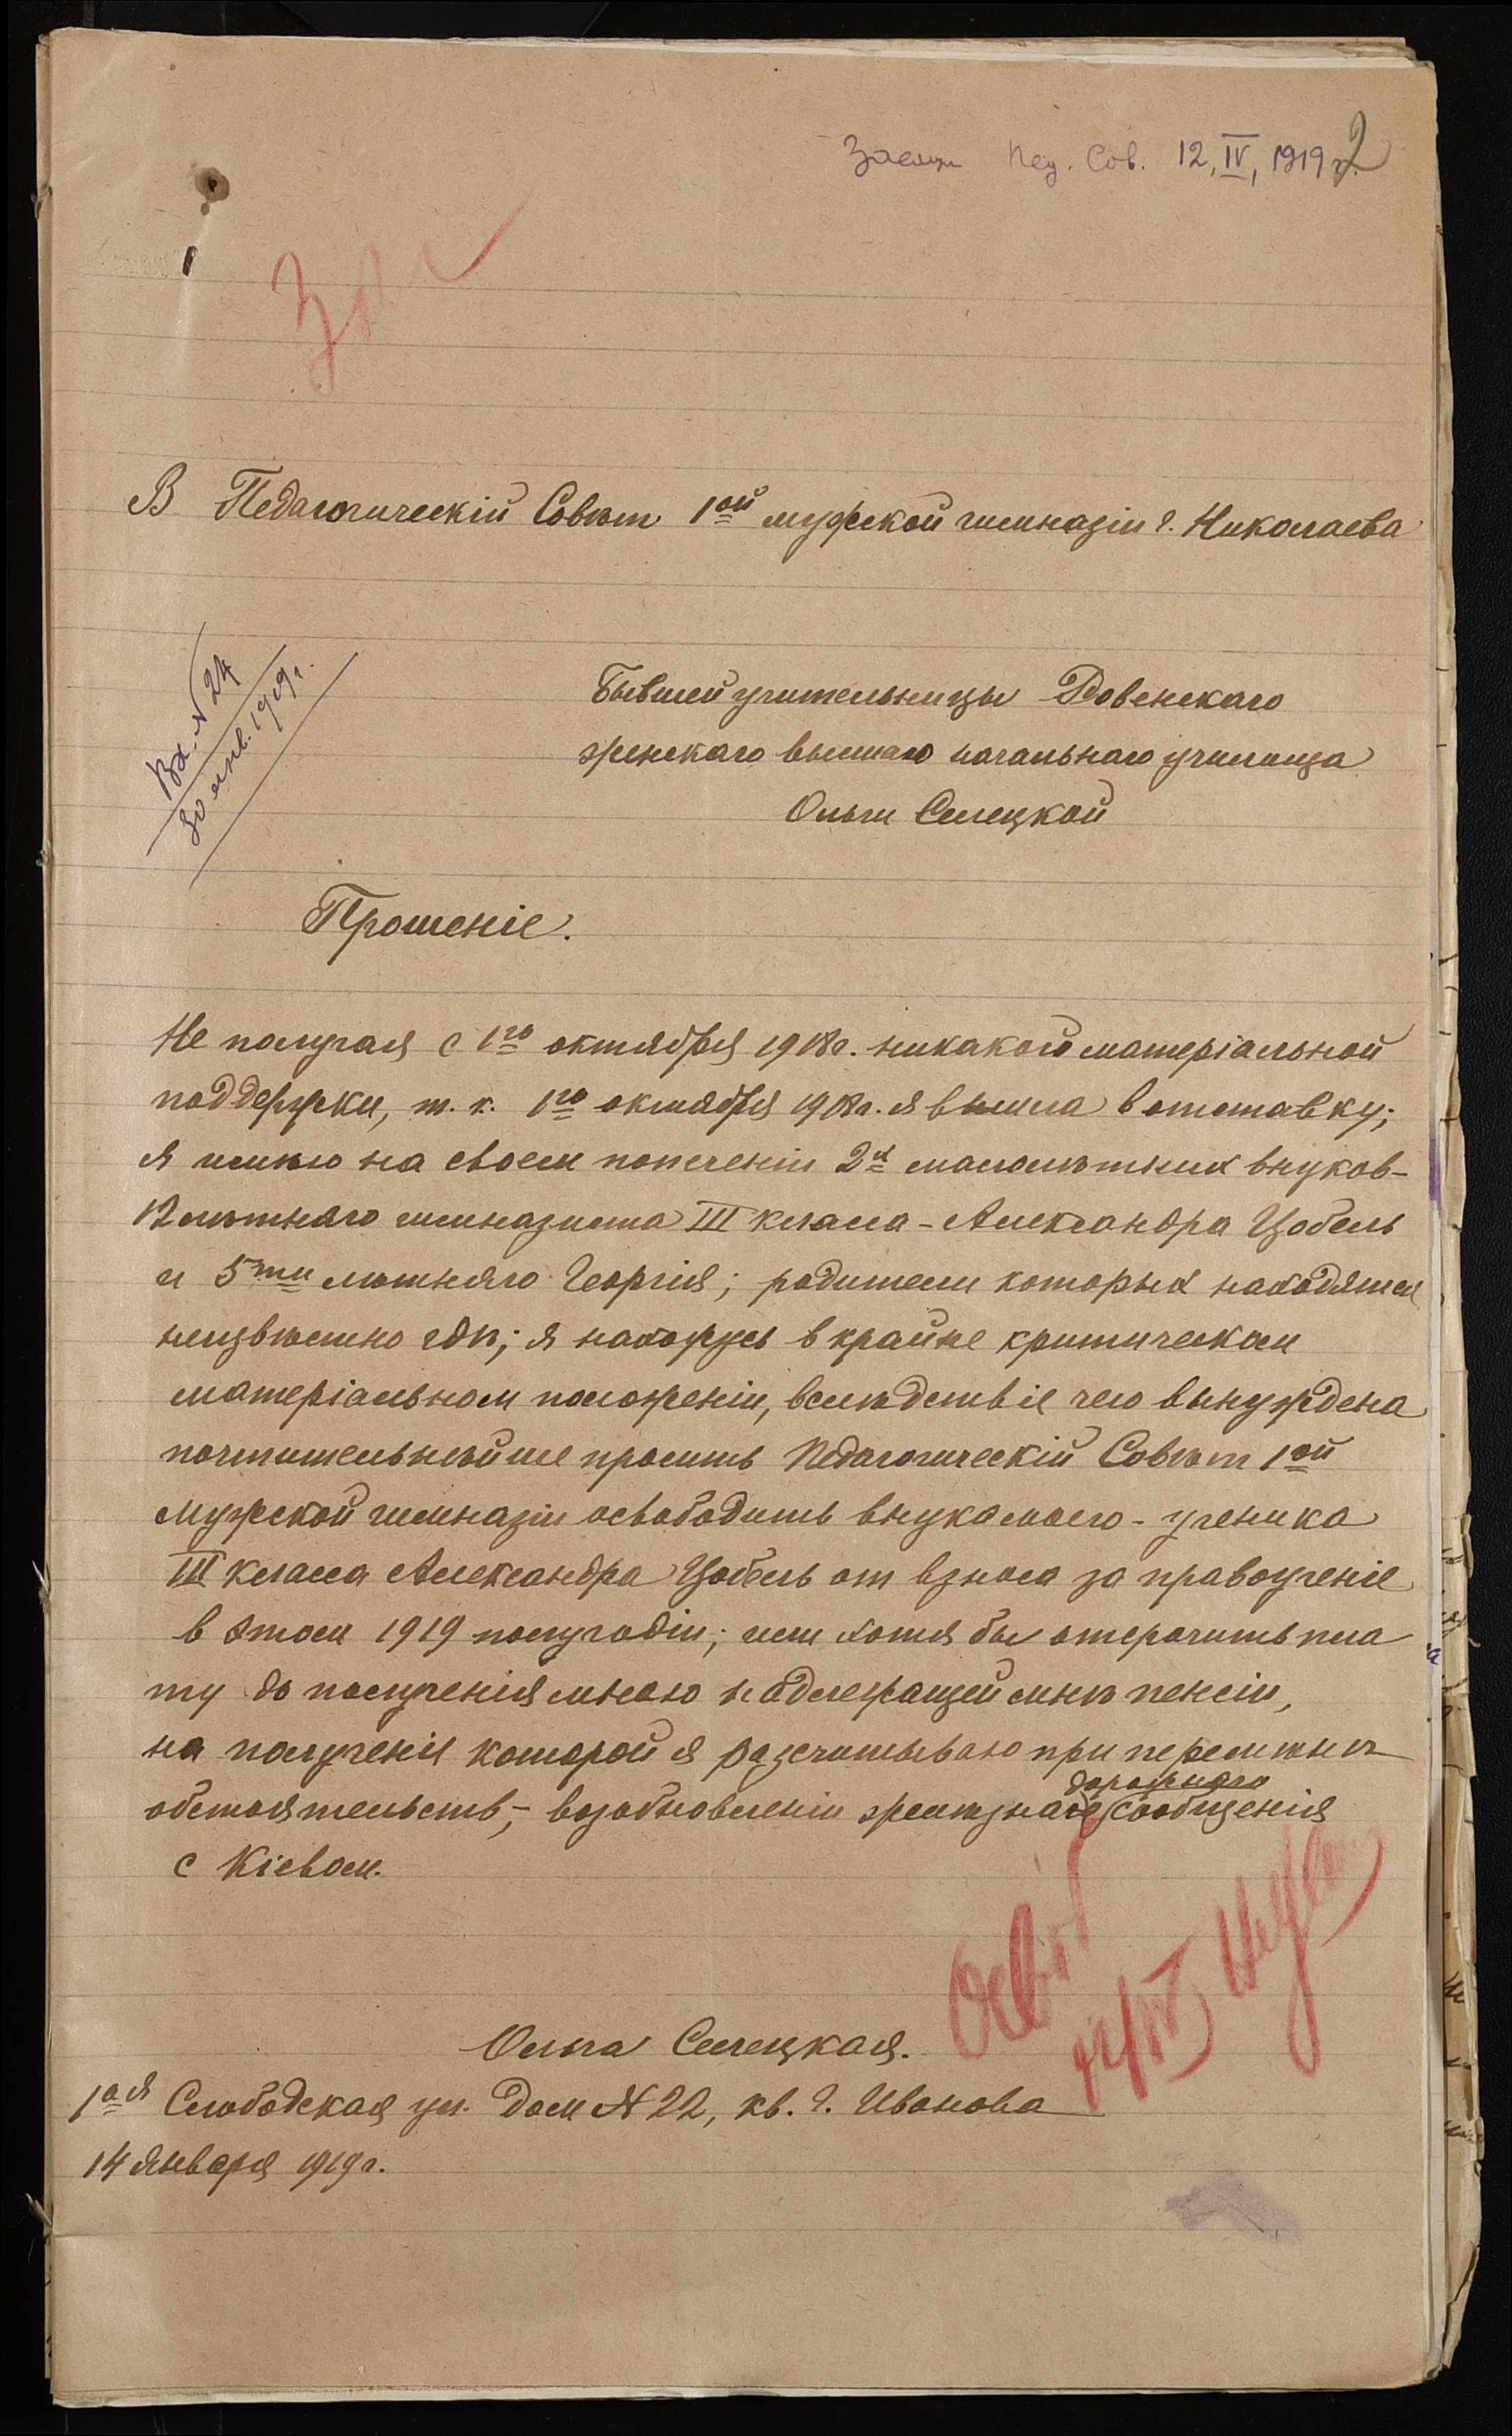 Пед. Сов. 12, IV, 1919 г.
2
В Педагогическій Совѣт 1ой мужской гимназіи г. Николаева
Вх. № 24
30 янв. 1919 г.
Бывшей учительницы Ровенскаго
женскаго высшаго начальнаго училища
Ольги Селецкой
Прошеніе.
Не получая с 1го октября 1918 г. никакой матеріальной
поддержки, т. к. 1го октября 1918 г. я вышла в отставку;
я имѣю на своем попеченіи 2х малолѣтних внуков –
12 лѣтняго гимназиста III класса – Александра Цобель
и 5ти лѣтняго Георгія; родители которых находятся
неизвѣстно гдѣ; я нахожусь в крайне критическом
матеріальном положеніи, вслѣдствіе чего вынуждена
почтительнѣйше просить Педагогическій Совѣт 1ой
мужской гимназіи освободить внука моего – ученика
III класса Александра Цобель от взноса за правоученіе
в этом 1919 полугодіи; или хотя бы отсрочить пла
ту до полученія мною надлежащей мнѣ пенсіи,
на полученіе которой я разсчитываю при перемѣнѣ
обстоятельств, – возобновленіи желѣзнодорожнаго сообщенія
с Кіевом.
Освоб
12/IV
Ольга Селецкая.
1ая Слободская ул. Дом № 22, кв. г. Иванова
14 января 1919 г.